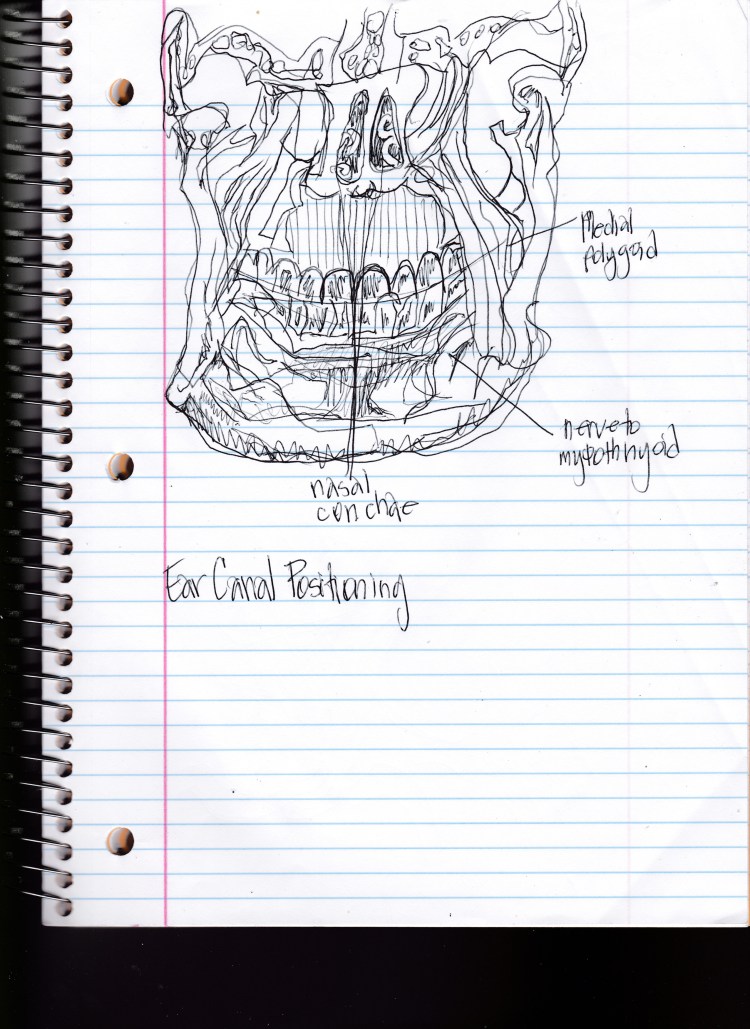 Medial
Polygoid
nerve to
nasal
conchae
Ear Canal Positioning